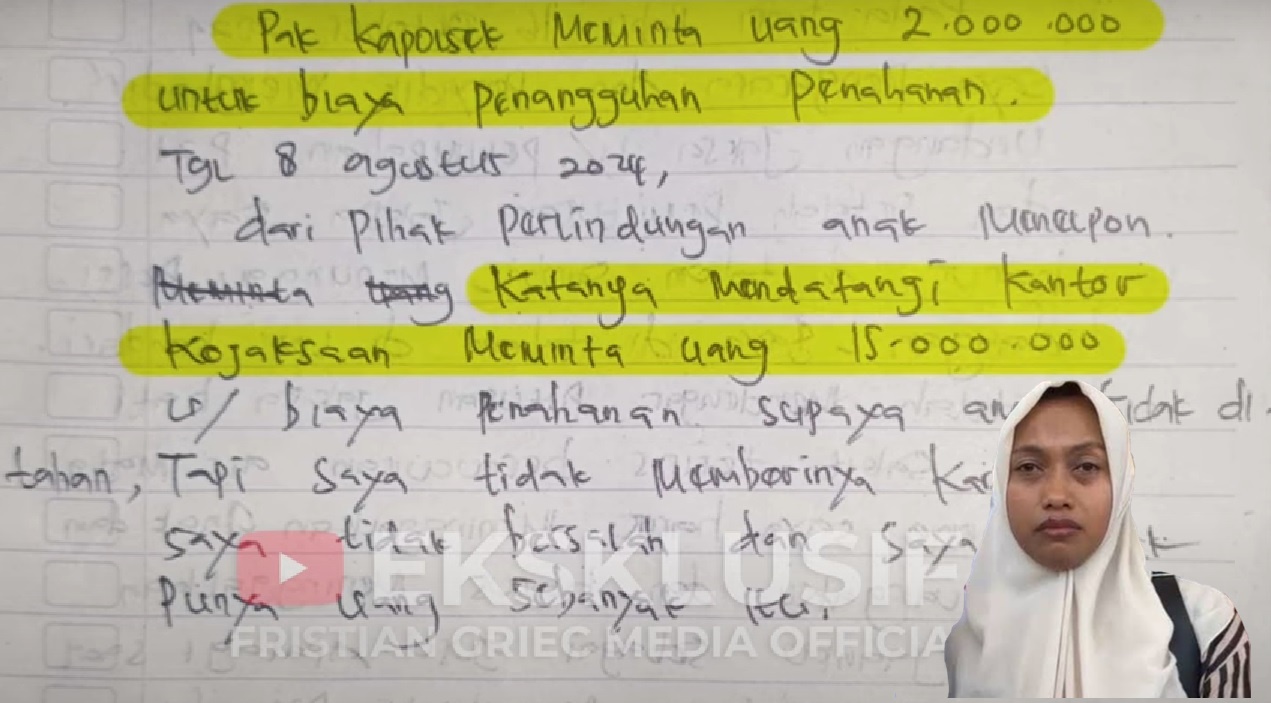 Pak Kapolsek Meminta uang 2.000.000
untuk biaya Penangguhan Penahanan.
Tgl 8 agustus 2024,
dari Pihak Perlindungan anak Menelpon.
Meminta uang Katanya Mendatangi kantor
Kejaksaan Meminta uang 15.000.000
u/ biaya Penahanan supaya tidak di
tahan, Tapi saya tidak Memberinya
saya tidak bersalah dan saya
Punya uang sebanyak itu.
EKSKLUSIF
FRISTIAN GRIEC MEDIA OFFICIA